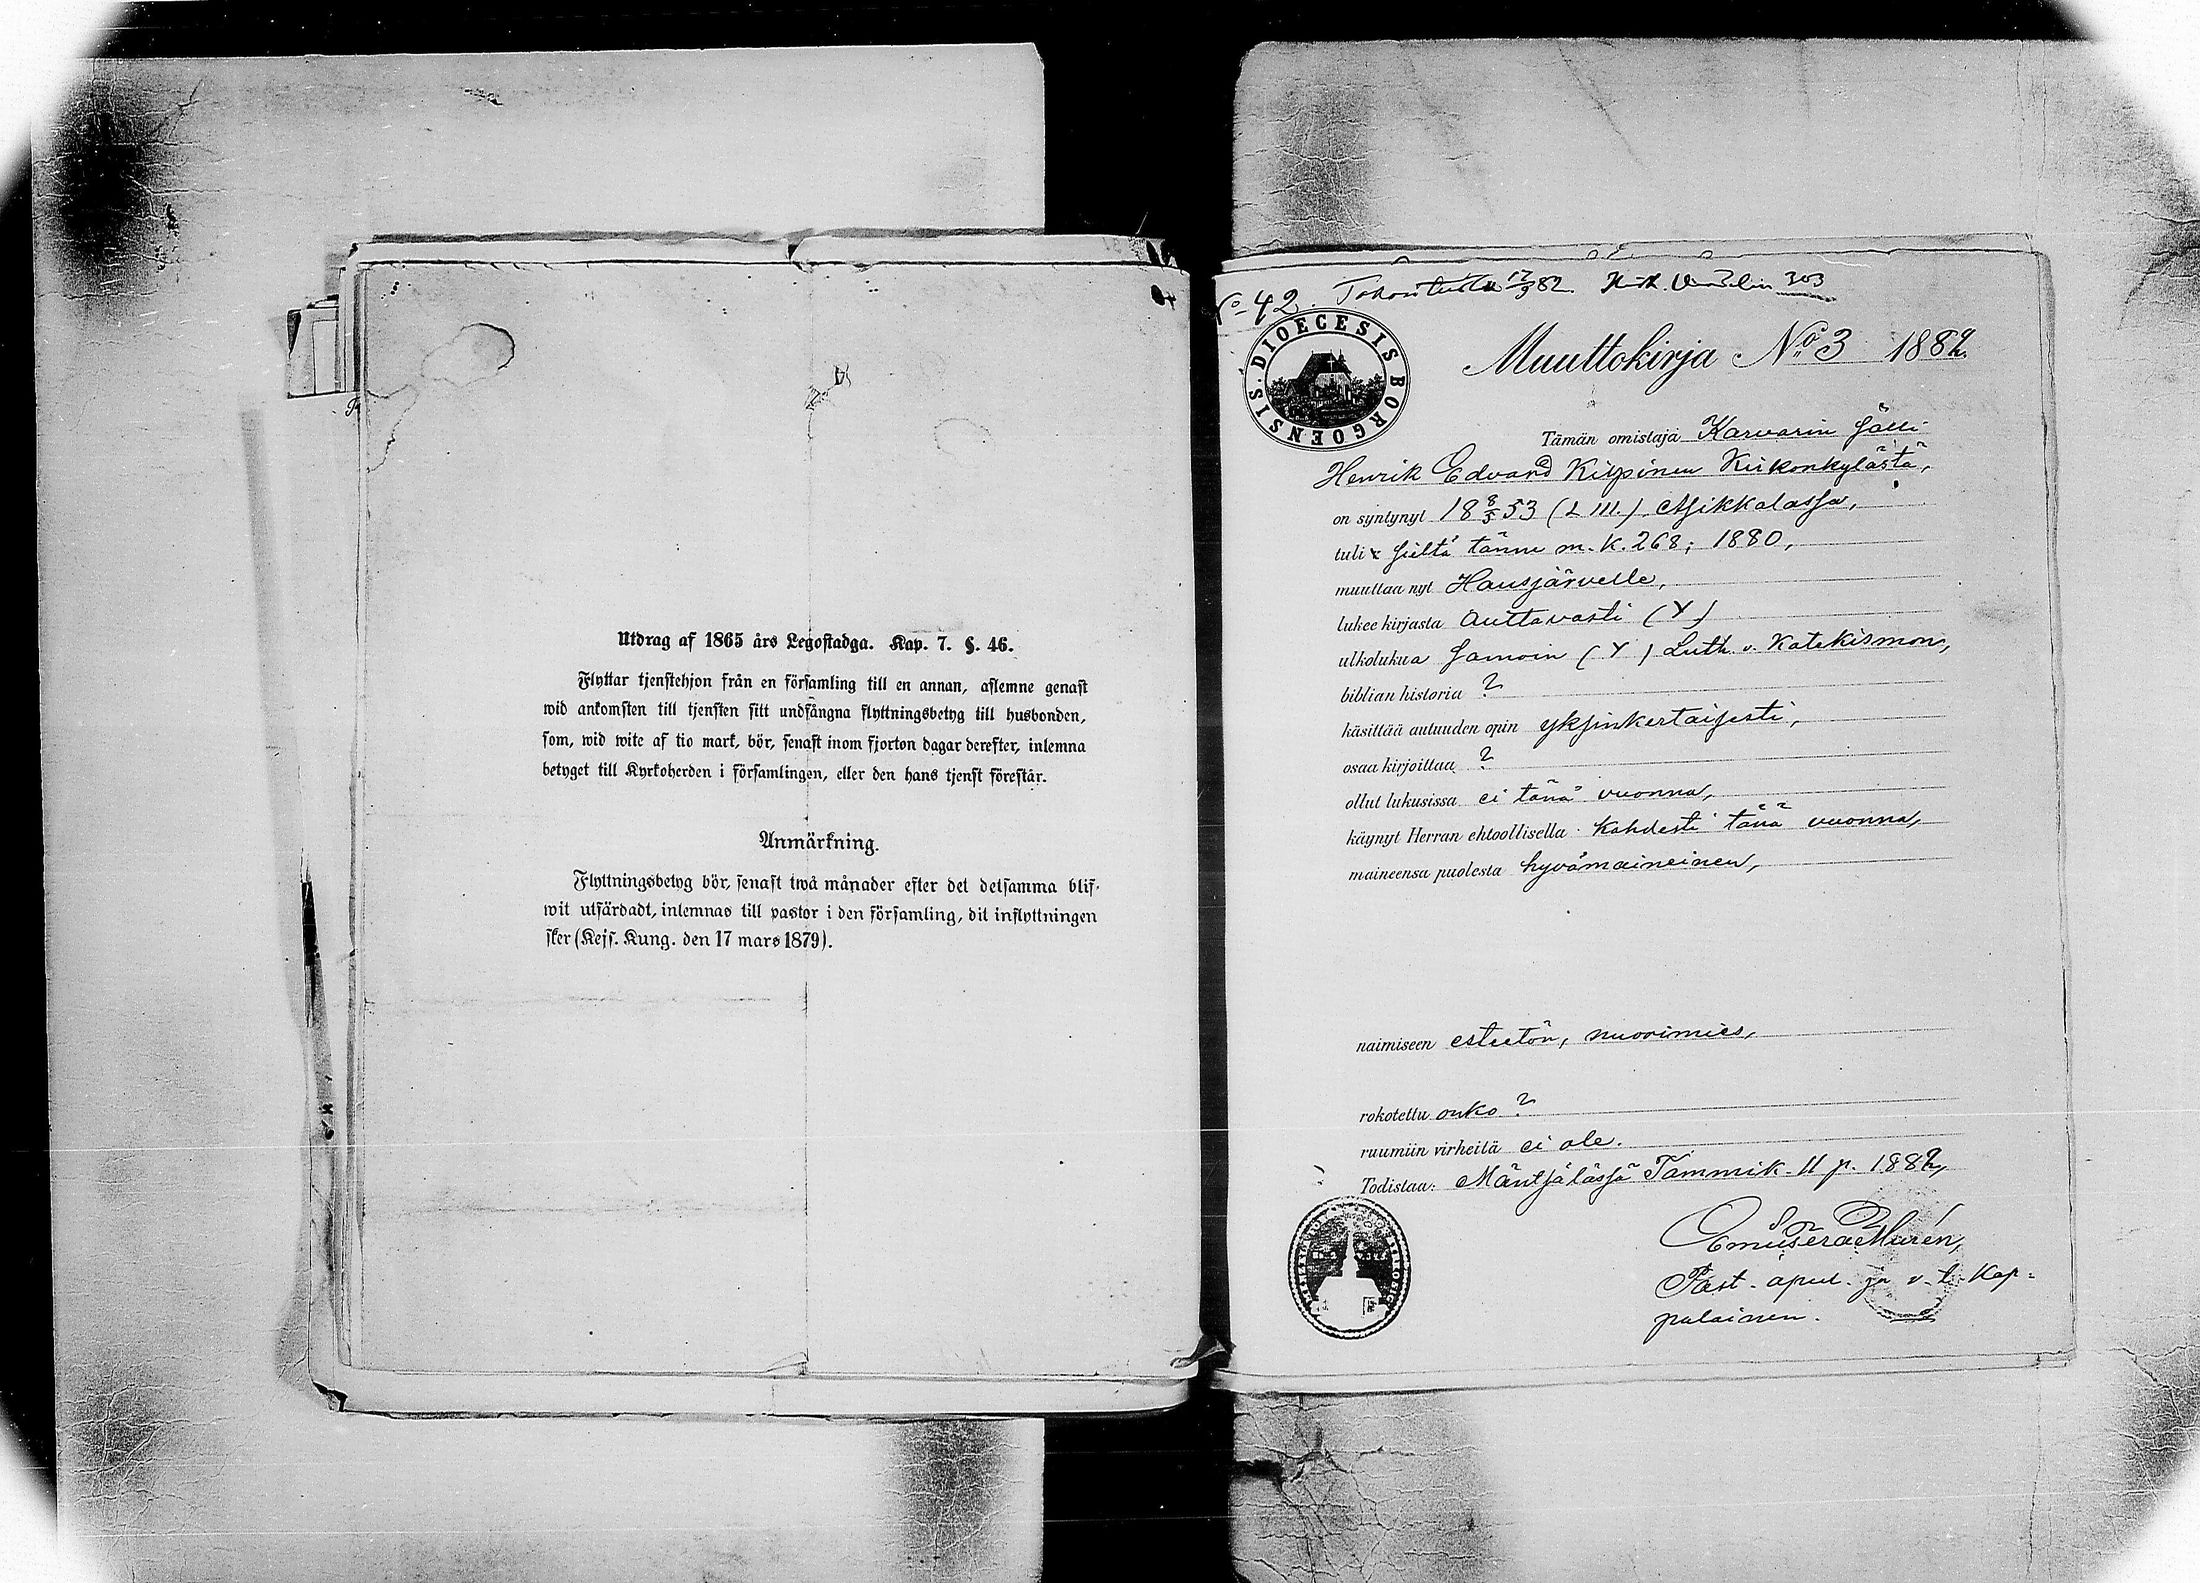 Utdrag af 1865 års Legostadga. Kap. 7. §. 46.
Flyttar tjenstehjon från en församling till en annan, aflemne genast
wid ankomsten till tjensten sitt undfångna flyttningsbetyg till husbonden,
som, wid wite af tio mark, bör, senast inom fjorton dagar derefter, inlemna
betyget till Kyrkoherden i församlingen, eller den hans tjenst förestår.
Anmärkning.
Flyttningsbetyg bör, senast twå månader efter det detsamma blif-
wit utfärdadt, inlemnas till pastor i den församling, dit inflyttningen
sker (Kejs. Kung. den 17 mars 1879).
No 42. 17/9 82. 303
DIOECESIS BORGOENSIS.
Muuttokirja No 3 1882.
Tämän omistaja Karvarin Sälli
Henrik Edvard Kirpinen Kiikonkylästä,
on syntynyt 18 8/5 53 (L III.) Asikkalassa,
tuli sieltä tänne m. k. 268; 1880,
muuttaa nyt Hausjärvelle,
lukee kirjasta auttavasti (Y)
ulkolukua samoin (Y) Luth. v. Katekismon,
biblian historia ?
käsittää autuuden opin yksinkertaisesti,
osaa kirjoittaa ?
ollut lukusissa ei tänä vuonna,
käynyt Herran ehtoollisella kahdesti tänä vuonna,
maineensa puolesta hyvämaineinen,
naimiseen esteetön, nuorimies,
rokotettu onko ?
ruumiin virheitä ei ole.
Todistaa: Mäntsälässä Tammik. 11 p. 1882,
Past. apul. ja v. t. Kap-
palainen.